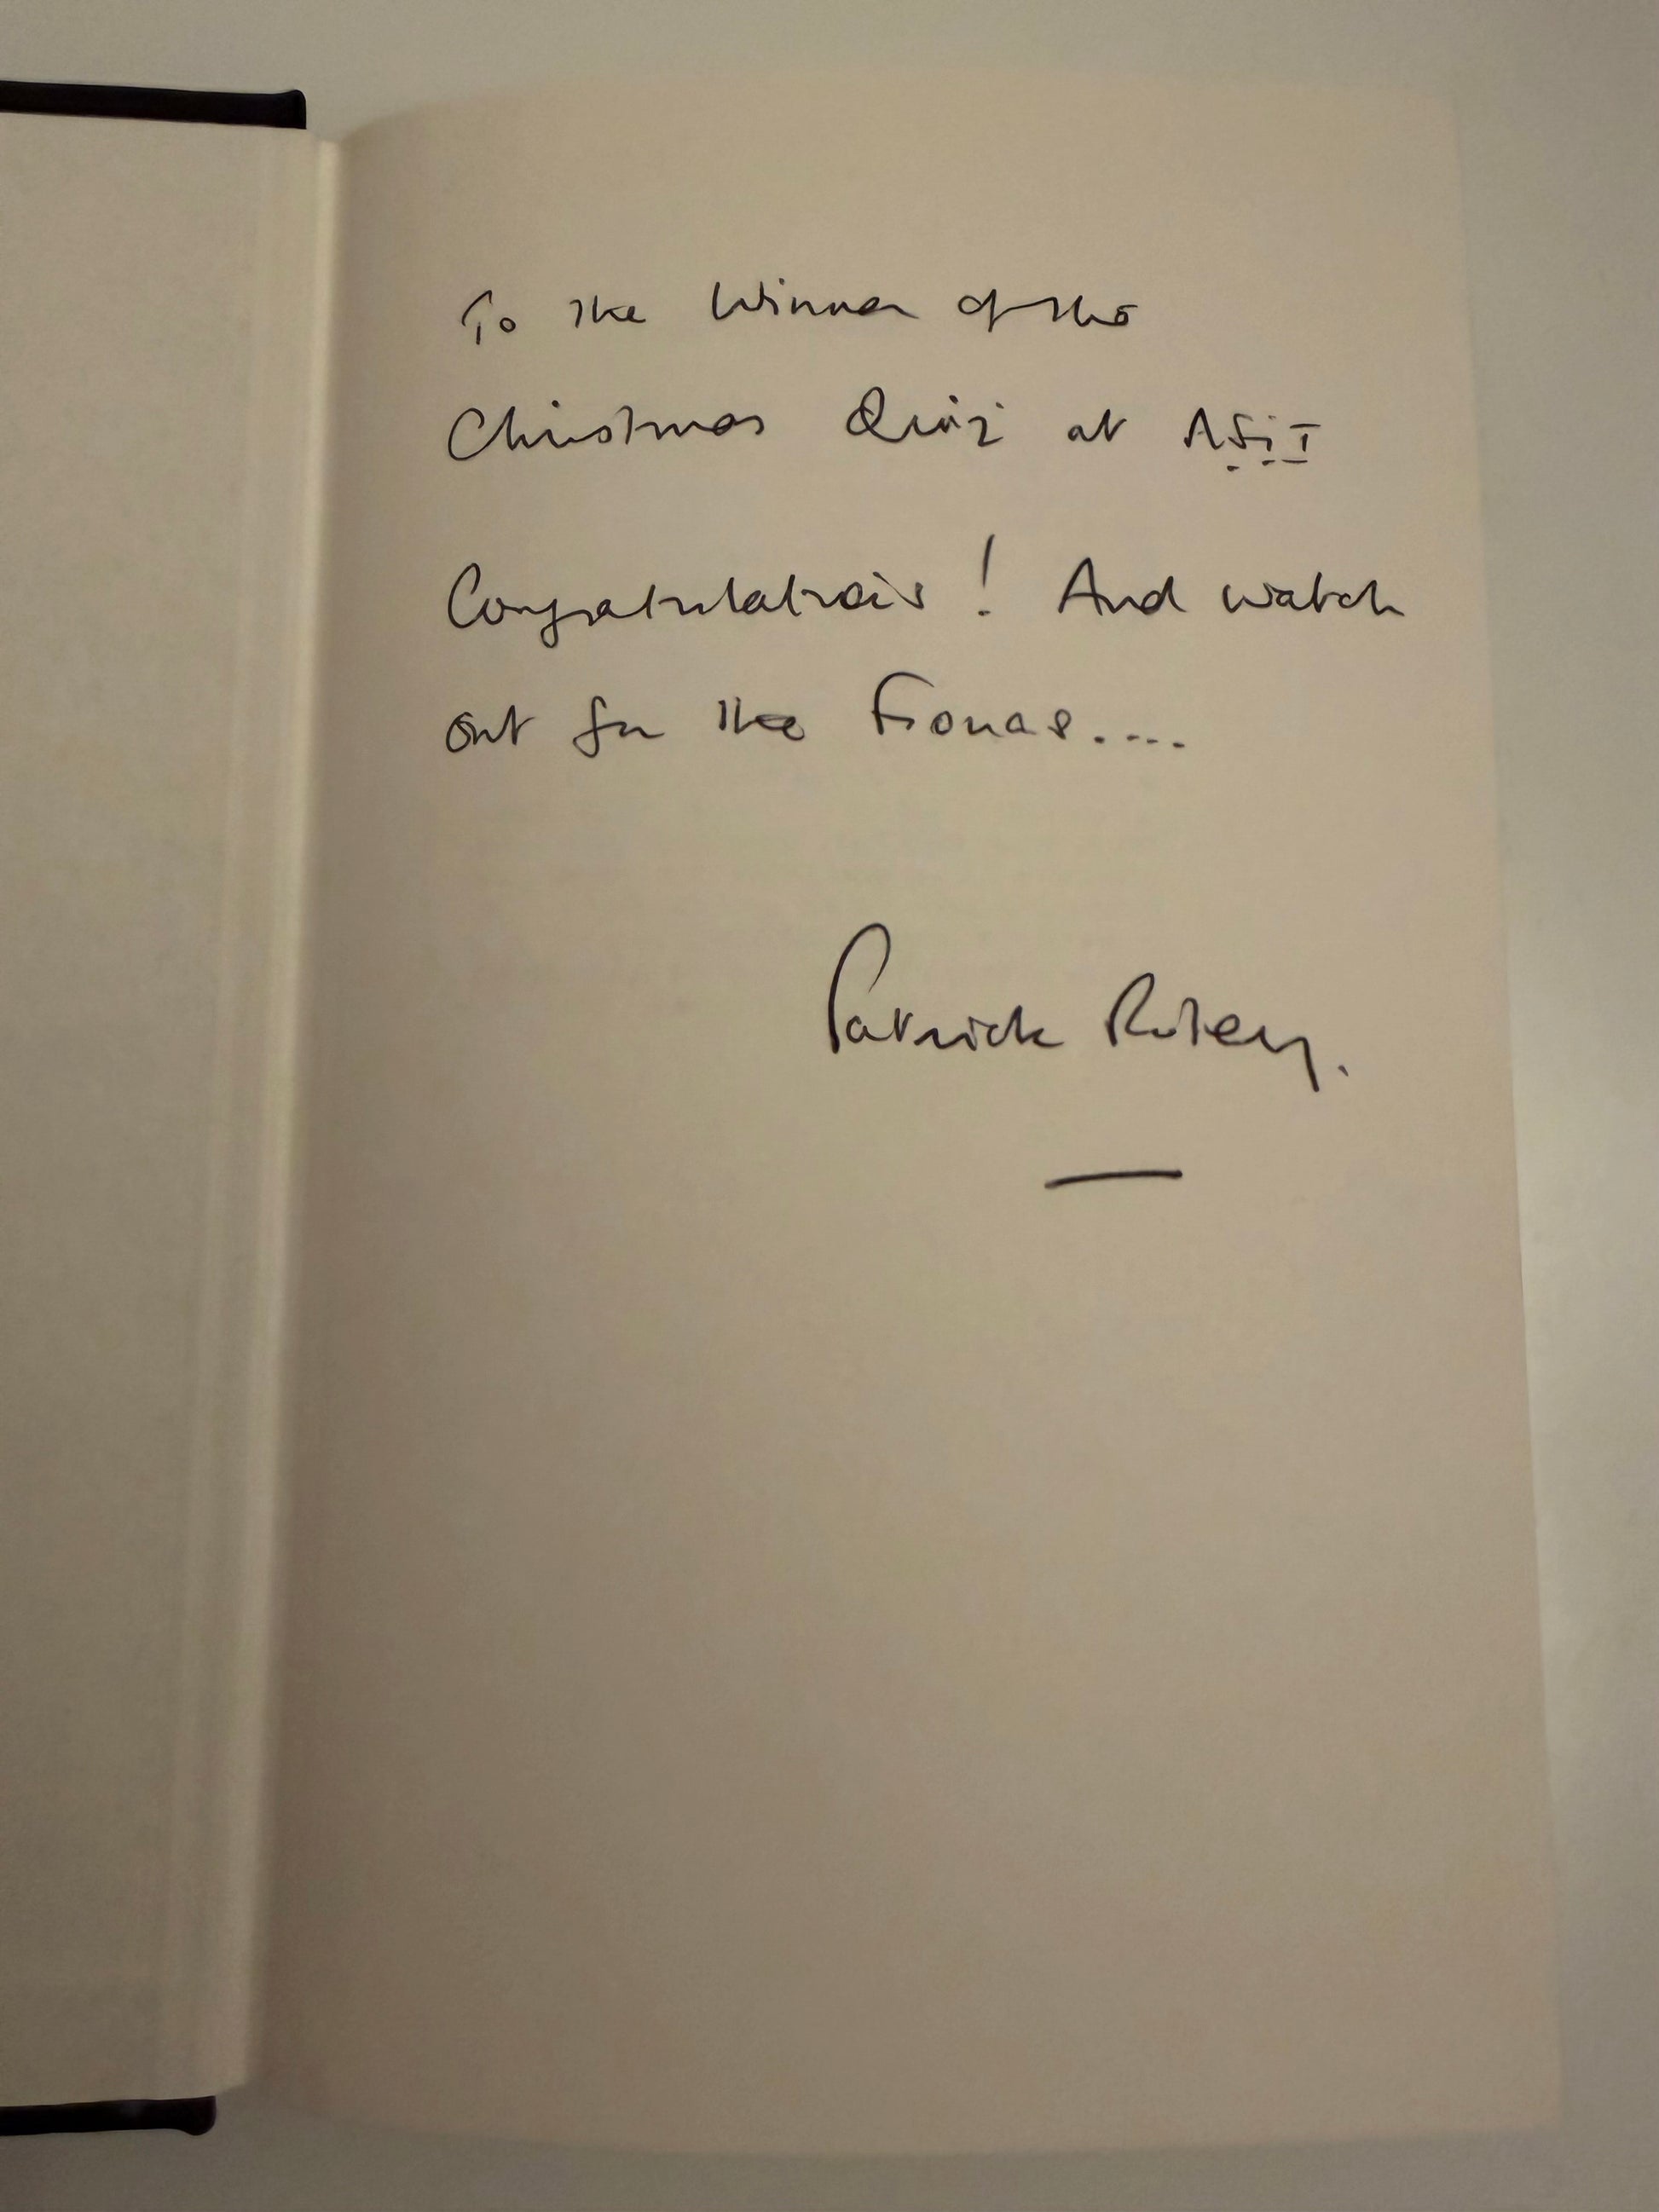 To the Winner of the
Christmas Quiz at ASiT
Congratulations! And watch
out for the Fionas....
Patrick